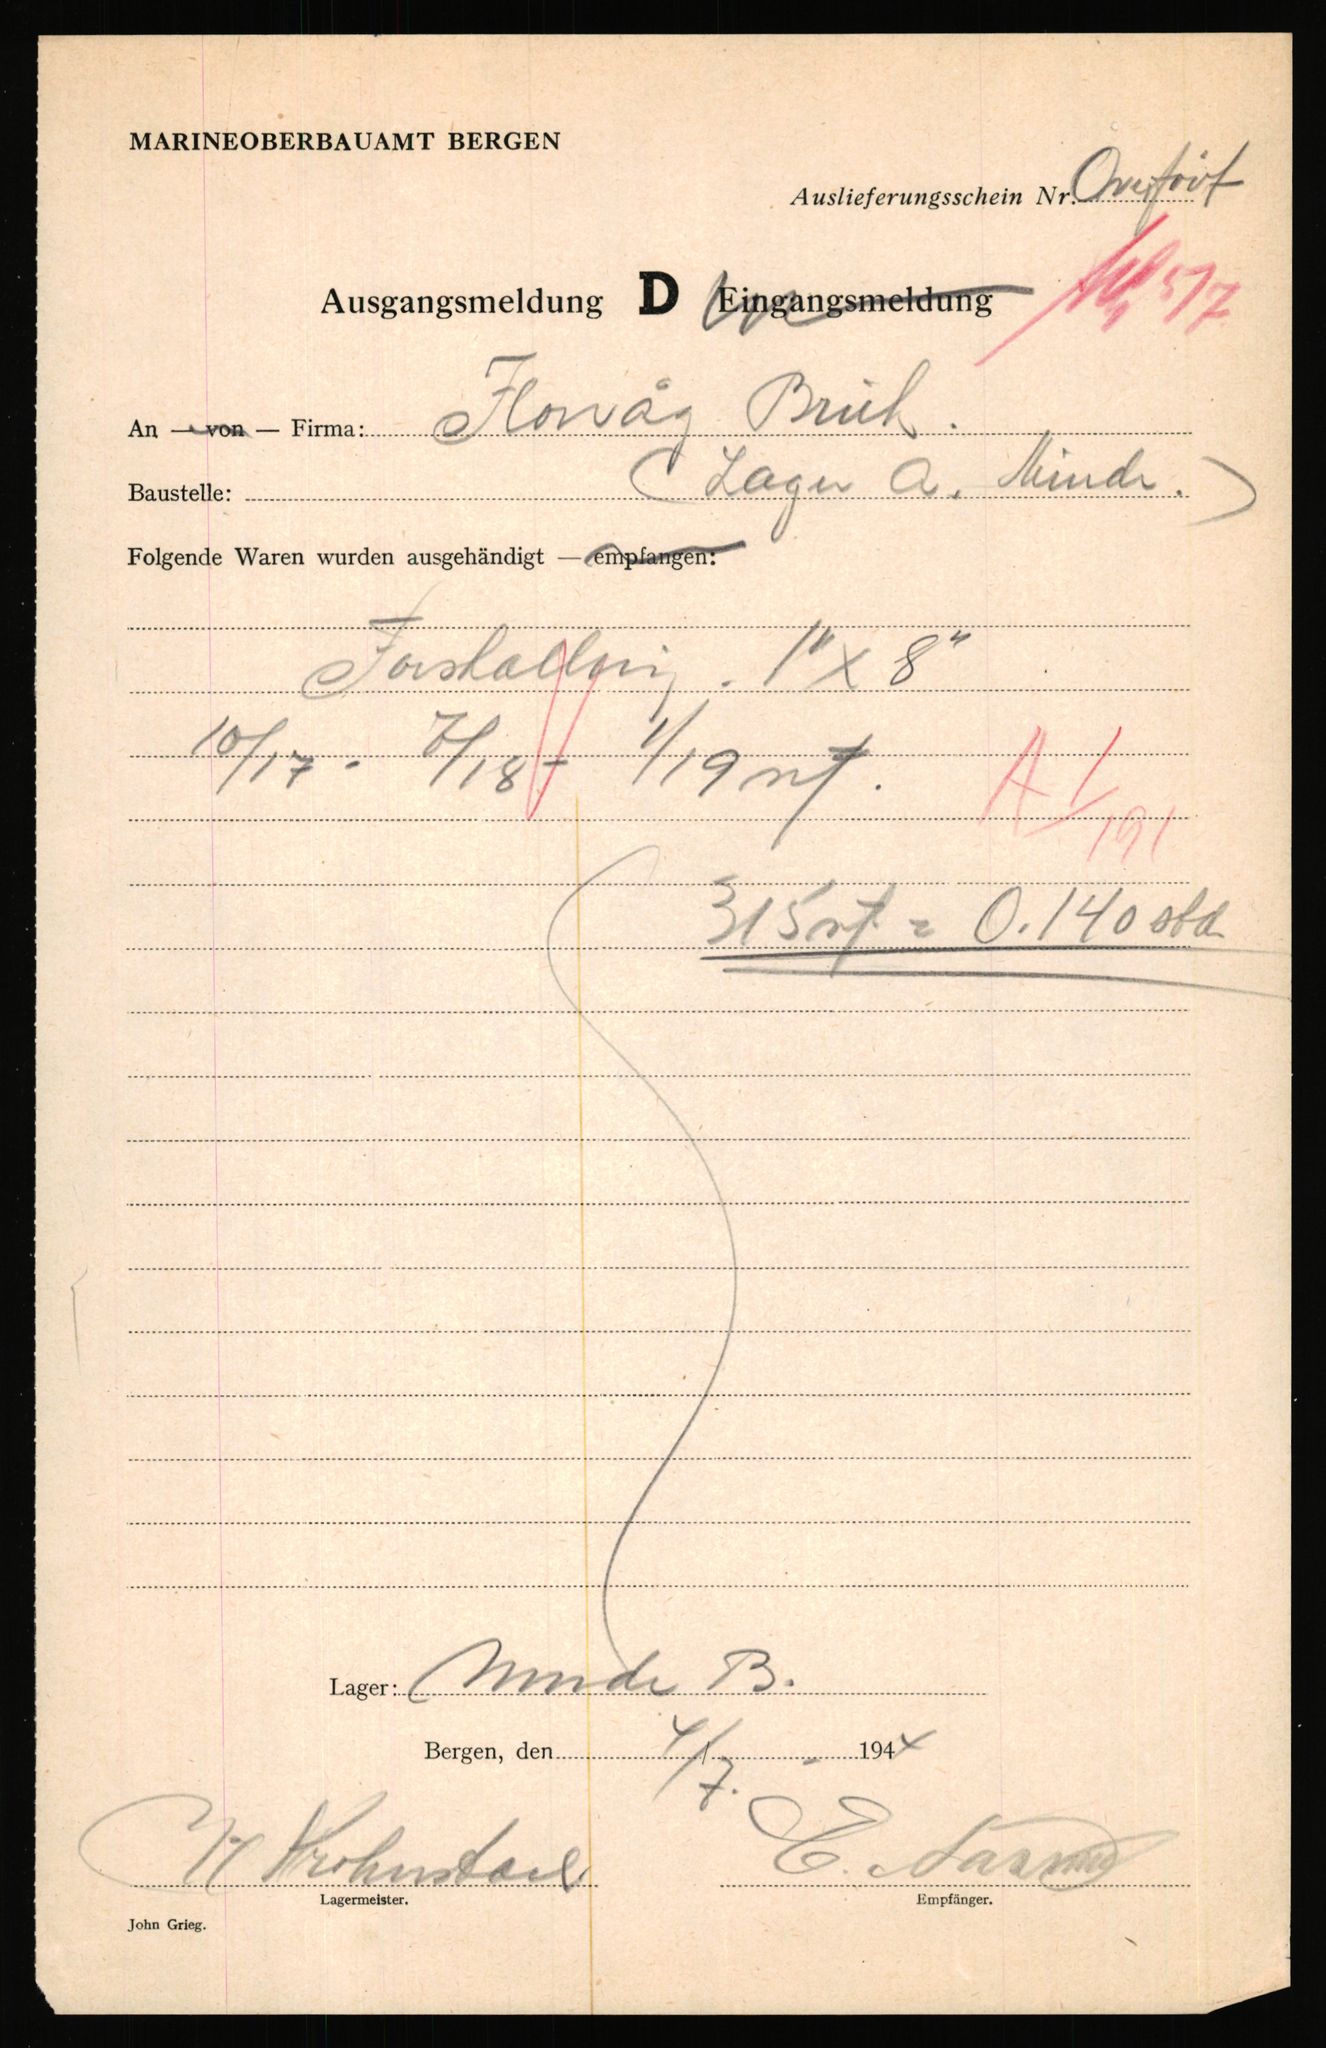 MARINEOBERBAUAMT BERGEN
Auslieferungsschein Nr. Overført
Ausgangsmeldung D Eingangsmeldung
5/7
An — von — Firma: Florvåg Bruk.
Baustelle: (Lager A. Minde.)
Folgende Waren wurden ausgehändigt — empfangen:
Forskalling. 1" x 8"
10/17 - 7/18 - 1/19 nf.
A 1/191
315 nf. = 0.140 std
Lager: Minde B.
Bergen, den 4/7. - 1944
Krohnstad
Lagermeister.
E.
Empfänger.
John Grieg.